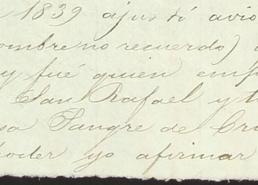 1839 ajustó avio
nombre no recuerdo)
y fué quien emp
San Rafael y t
sa Sangre de Cri
poder yo afirmar